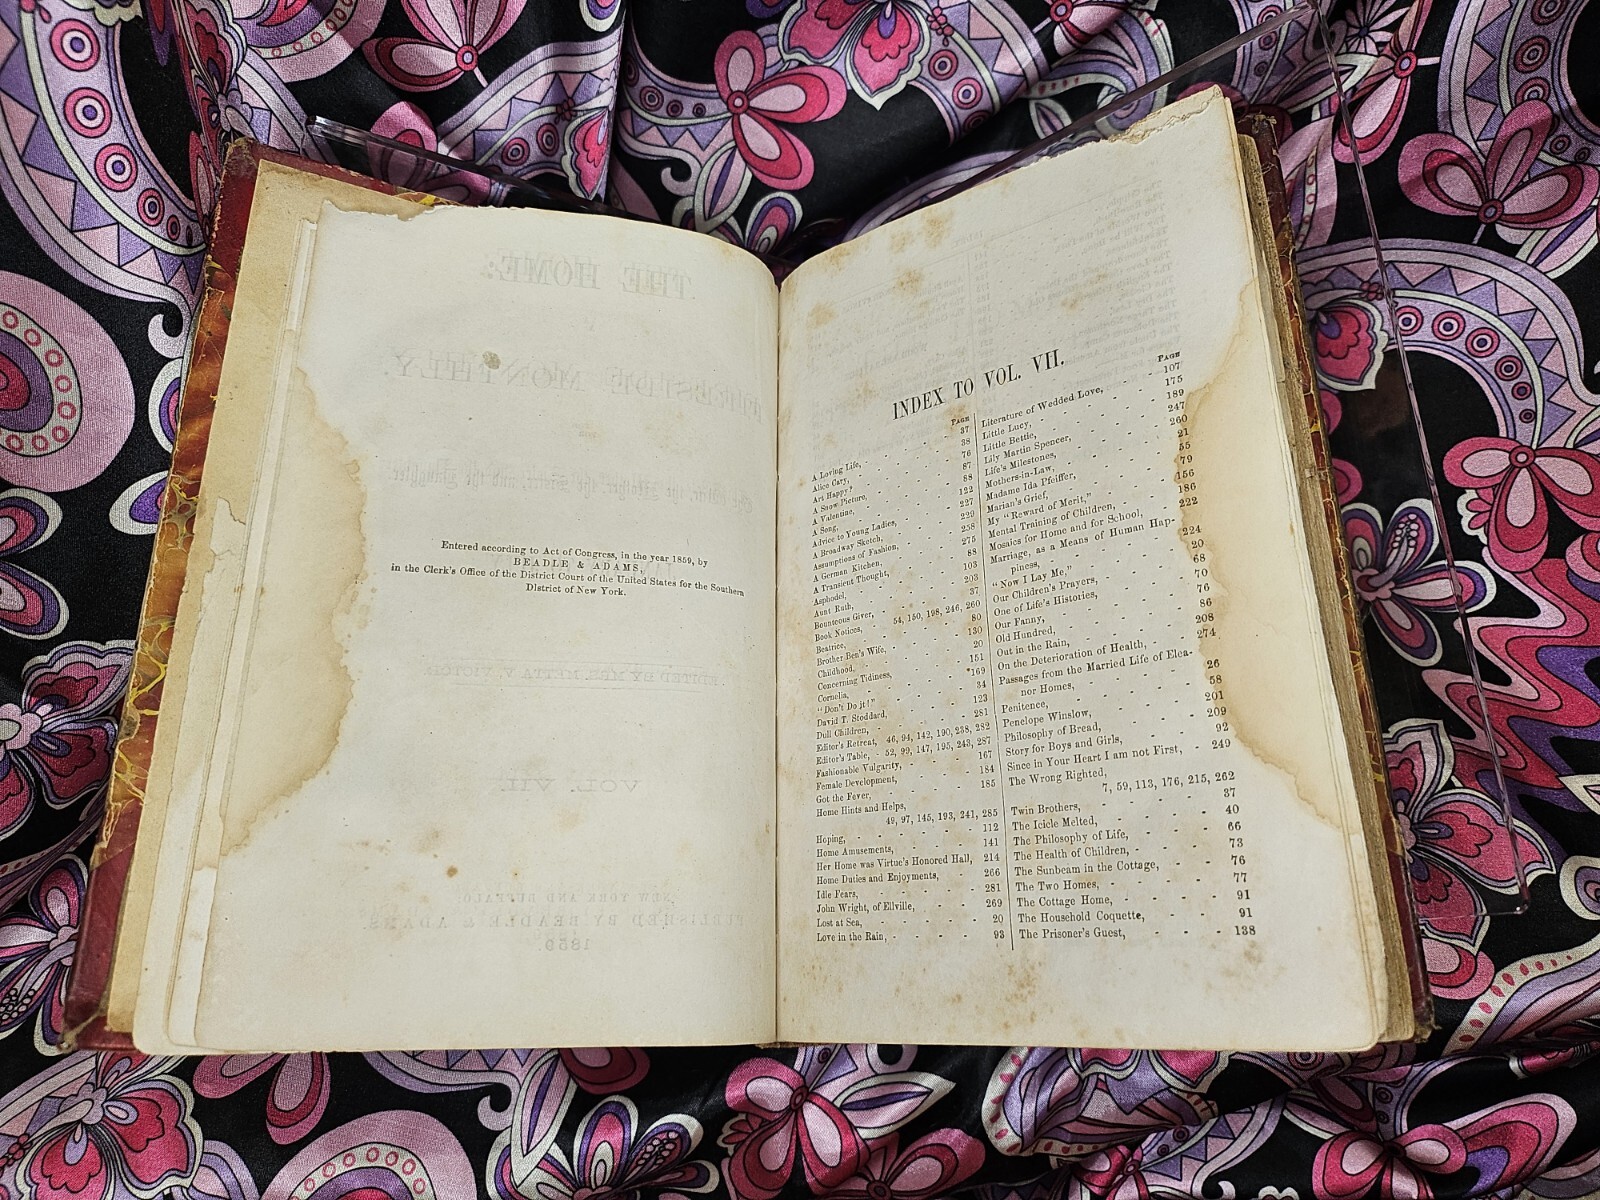 Entered according to Act of Congress, in the year 1859, by
BEADLE & ADAMS,
in the Clerk's Office of the District Court of the United States for the Southern
District of New York.
INDEX TO VOL. VII.
PAGE
A Loving Life, 37
Alice Cary, 38
Art Happy? 76
A Snow Picture, 87
A Valentine, 88
A Song, 122
Advice to Young Ladies, 227
A Broadway Sketch, 229
Assumptions of Fashion, 258
A German Kitchen, 275
A Transient Thought, 88
Asphodel, 103
Aunt Ruth, 203
Bounteous Giver, 37
Book Notices, 54, 150, 198, 246, 260
Beatrice, 80
Brother Ben's Wife, 130
Childhood, 20
Concerning Tidiness, 151
Cornelia, 169
"Don't Do it!" 34
David T. Stoddard, 123
Dull Children, 281
Editor's Retreat, 46, 94, 142, 190, 238, 282
Editor's Table, 52, 99, 147, 195, 243, 287
Fashionable Vulgarity, 167
Female Development, 184
Got the Fever, 185
Home Hints and Helps,
49, 97, 145, 193, 241, 285
Hoping, 112
Home Amusements, 141
Her Home was Virtue's Honored Hall, 214
Home Duties and Enjoyments, 266
Idle Fears, 281
John Wright, of Ellville, 269
Lost at Sea, 20
Love in the Rain, 93
PAGE
Literature of Wedded Love, 107
Little Lucy, 175
Little Bettie, 189
Lily Martin Spencer, 247
Life's Milestones, 260
Mothers-in-Law, 21
Madame Ida Pfeiffer, 55
Marian's Grief, 79
My "Reward of Merit," 156
Mental Training of Children, 186
Mosaics for Home and for School, 222
Marriage, as a Means of Human Hap-
piness, 224
"Now I Lay Me," 20
Our Children's Prayers, 68
One of Life's Histories, 70
Our Fanny, 76
Old Hundred, 86
Out in the Rain, 208
On the Deterioration of Health, 274
Passages from the Married Life of Elea-
nor Homes, 26
Penitence, 58
Penelope Winslow, 201
Philosophy of Bread, 209
Story for Boys and Girls, 92
Since in Your Heart I am not First, 249
The Wrong Righted,
7, 59, 113, 176, 215, 262
Twin Brothers, 37
The Icicle Melted, 40
The Philosophy of Life, 66
The Health of Children, 73
The Sunbeam in the Cottage, 76
The Two Homes, 77
The Cottage Home, 91
The Household Coquette, 91
The Prisoner's Guest, 138